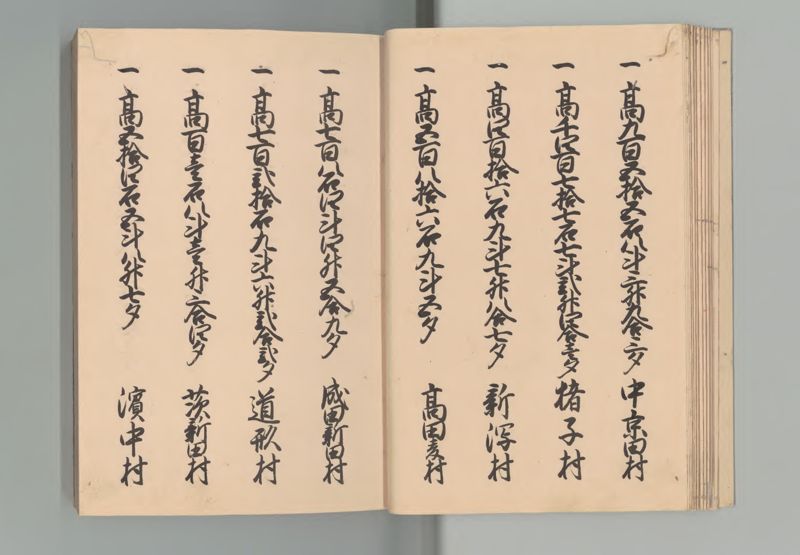 一 高九百五拾五石八斗三升九合三夕 中京田村
一 高千四百七拾七石七斗弐升四合壱夕 猪子村
一 高四百拾六石九斗七升八合七夕 新潟村
一 高五百八拾六石九斗五夕 高田麦村
一 高七百八石四斗四升五合九夕 成田新田村
一 高七百弐拾石九斗六升弐合弐夕 道形村
一 高百壱石八斗壱升六合四夕 茨新田村
一 高五拾四石五斗八升七夕 濱中村